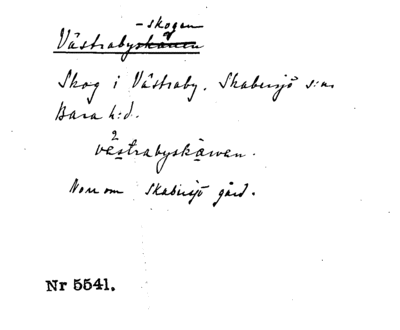 -skogen
Västrabyskåuen
Skog i Västraby. Skabersjö s:n.
Bara h:d.
2
västrabyskåwen.
Norr om Skabersjö gård.
Nr 5541.